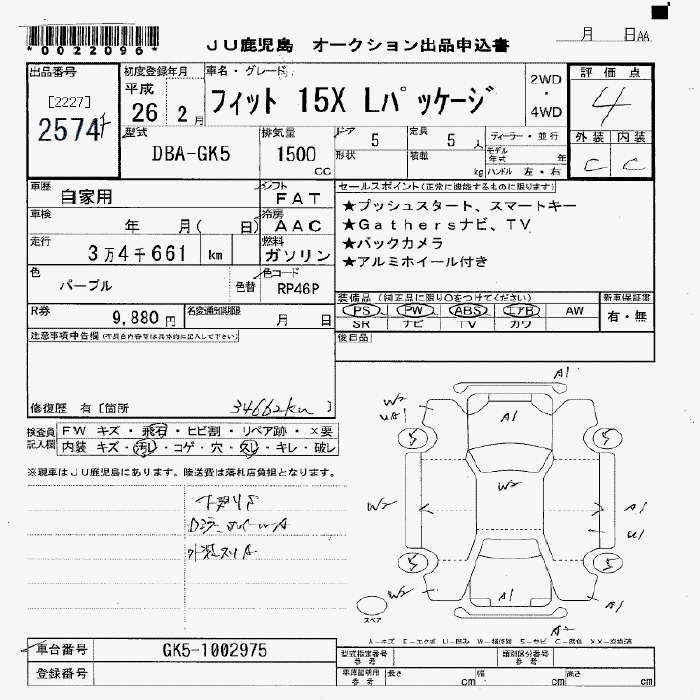 *0022096*
JU鹿児島 オークション出品申込書
月 日AA
出品番号
[2227]
2574
初度登録年月
平成
26 2月
車名・グレード
フィット 15X Lパッケージ
2WD
・
4WD
評価点
4
外装 内装
C C
型式
DBA-GK5
排気量
1500
CC
ドア
5
定員
5人
形状
積載
kg
ディーラー・並行
モデル年式 年
ハンドル 左・右
車歴
自家用
シフト
FAT
車検
年 月( 日)
冷房
AAC
走行
3万4千661 km
燃料
ガソリン
色
パープル
色替
色コード
RP46P
R券
9,880円
名変通知期限
月 日
セールスポイント(正常に機能するものに限ります)
★プッシュスタート、スマートキー
★Gathersナビ、TV
★バックカメラ
★アルミホイール付き
装備品 (純正品に限り○をつけてください)
PS PW ABS エアB AW
SR ナビ TV カワ
新車保証書
有・無
後日品
注意事項申告欄
修復歴 有[箇所 34662km ]
検査員記入欄
FW キズ・飛石・ヒビ割・リペア跡・×要
内装 キズ・汚れ・コゲ・穴・欠レ・キレ・破レ
※現車はJU鹿児島にあります。陸送費は落札店負担となります。
下廻りS
外装スリA
A1
W2
A1
5
5
W2
W2
A1
5
5
W2
A1
A1
A2
スペア
車台番号
GK5-1002975
登録番号
型式指定番号
参考
類別区分番号
参考
車庫証明用
参考
長さ cm
幅 cm
高さ cm